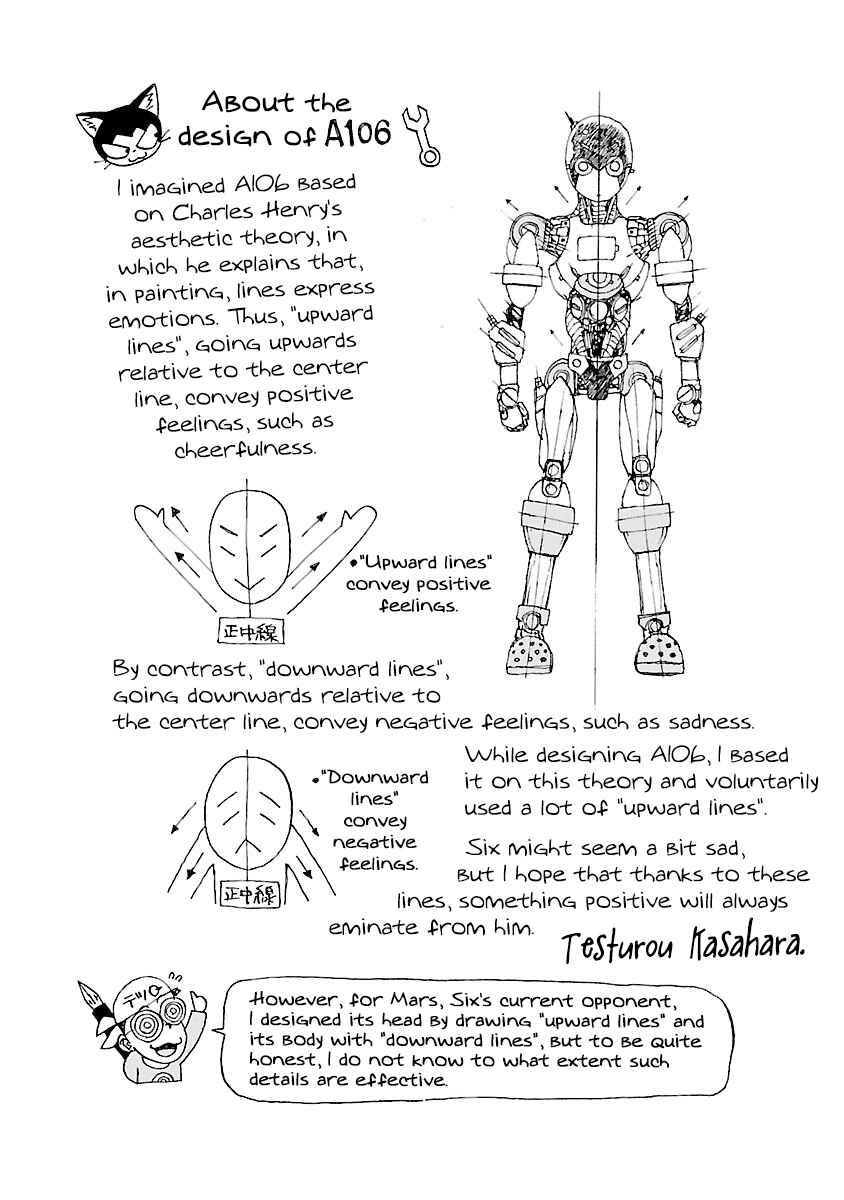 About the
design of A106
I imagined A106 based
on Charles Henry's
aesthetic theory, in
which he explains that,
in painting, lines express
emotions. Thus, "upward
lines", going upwards
relative to the center
line, convey positive
feelings, such as
cheerfulness.
•"Upward lines"
convey positive
feelings.
正中線
By contrast, "downward lines",
going downwards relative to
the center line, convey negative feelings, such as sadness.
•"Downward
lines"
convey
negative
feelings.
正中線
While designing A106, I based
it on this theory and voluntarily
used a lot of "upward lines".
Six might seem a bit sad,
but I hope that thanks to these
lines, something positive will always
eminate from him.
Testurou Kasahara.
テツロー
However, for Mars, Six's current opponent,
I designed its head by drawing "upward lines" and
its body with "downward lines", but to be quite
honest, I do not know to what extent such
details are effective.